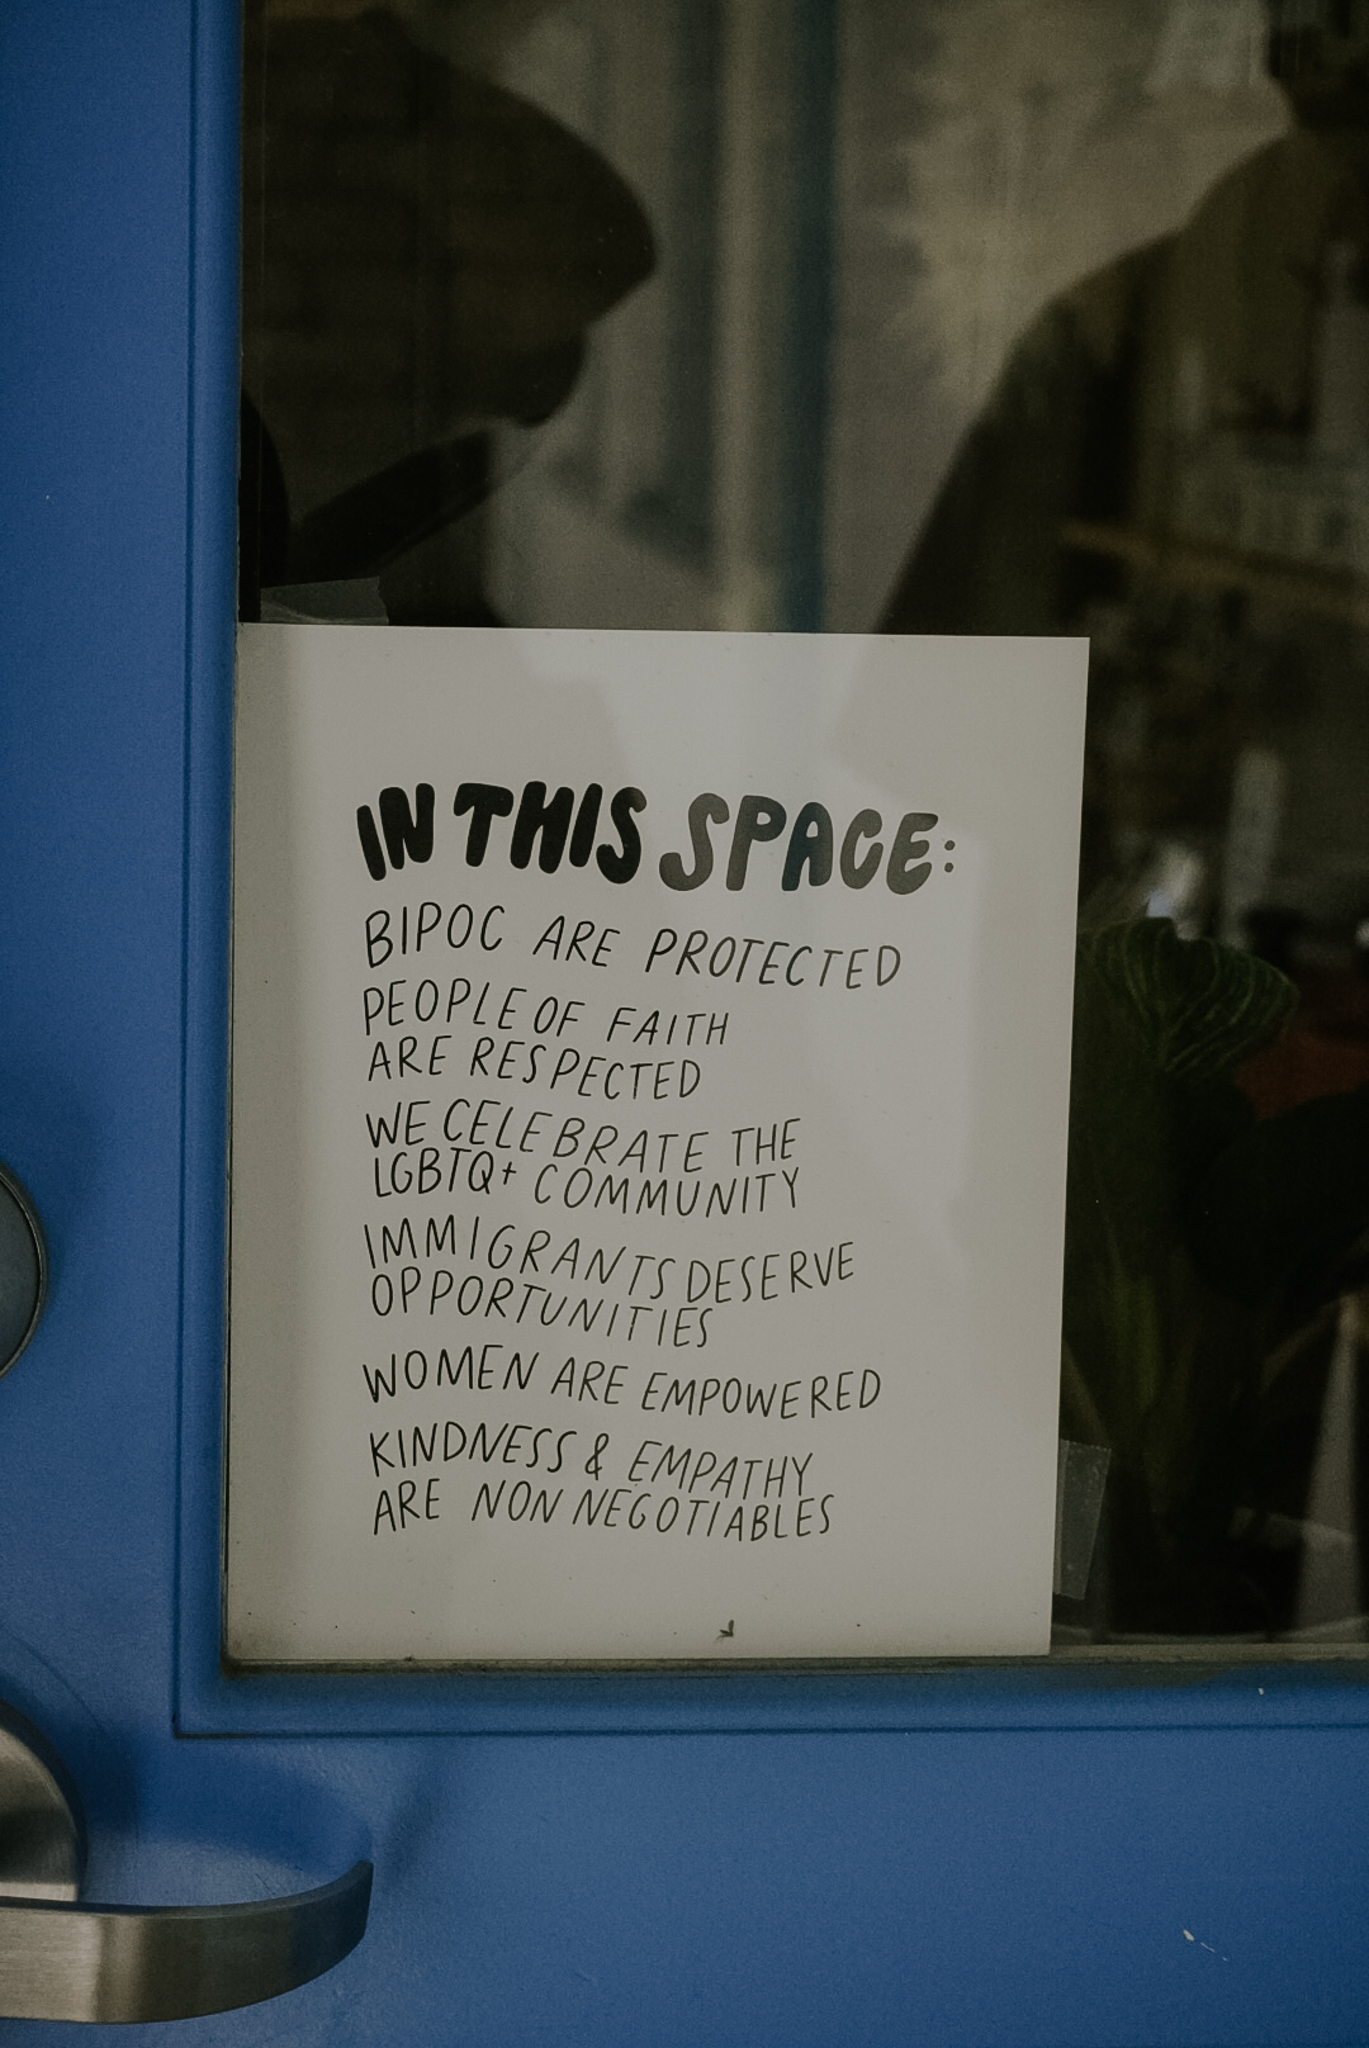 IN THIS SPACE:
BIPOC ARE PROTECTED
PEOPLE OF FAITH
ARE RESPECTED
WE CELEBRATE THE
LGBTQ+ COMMUNITY
IMMIGRANTS DESERVE
OPPORTUNITIES
WOMEN ARE EMPOWERED
KINDNESS & EMPATHY
ARE NON NEGOTIABLES